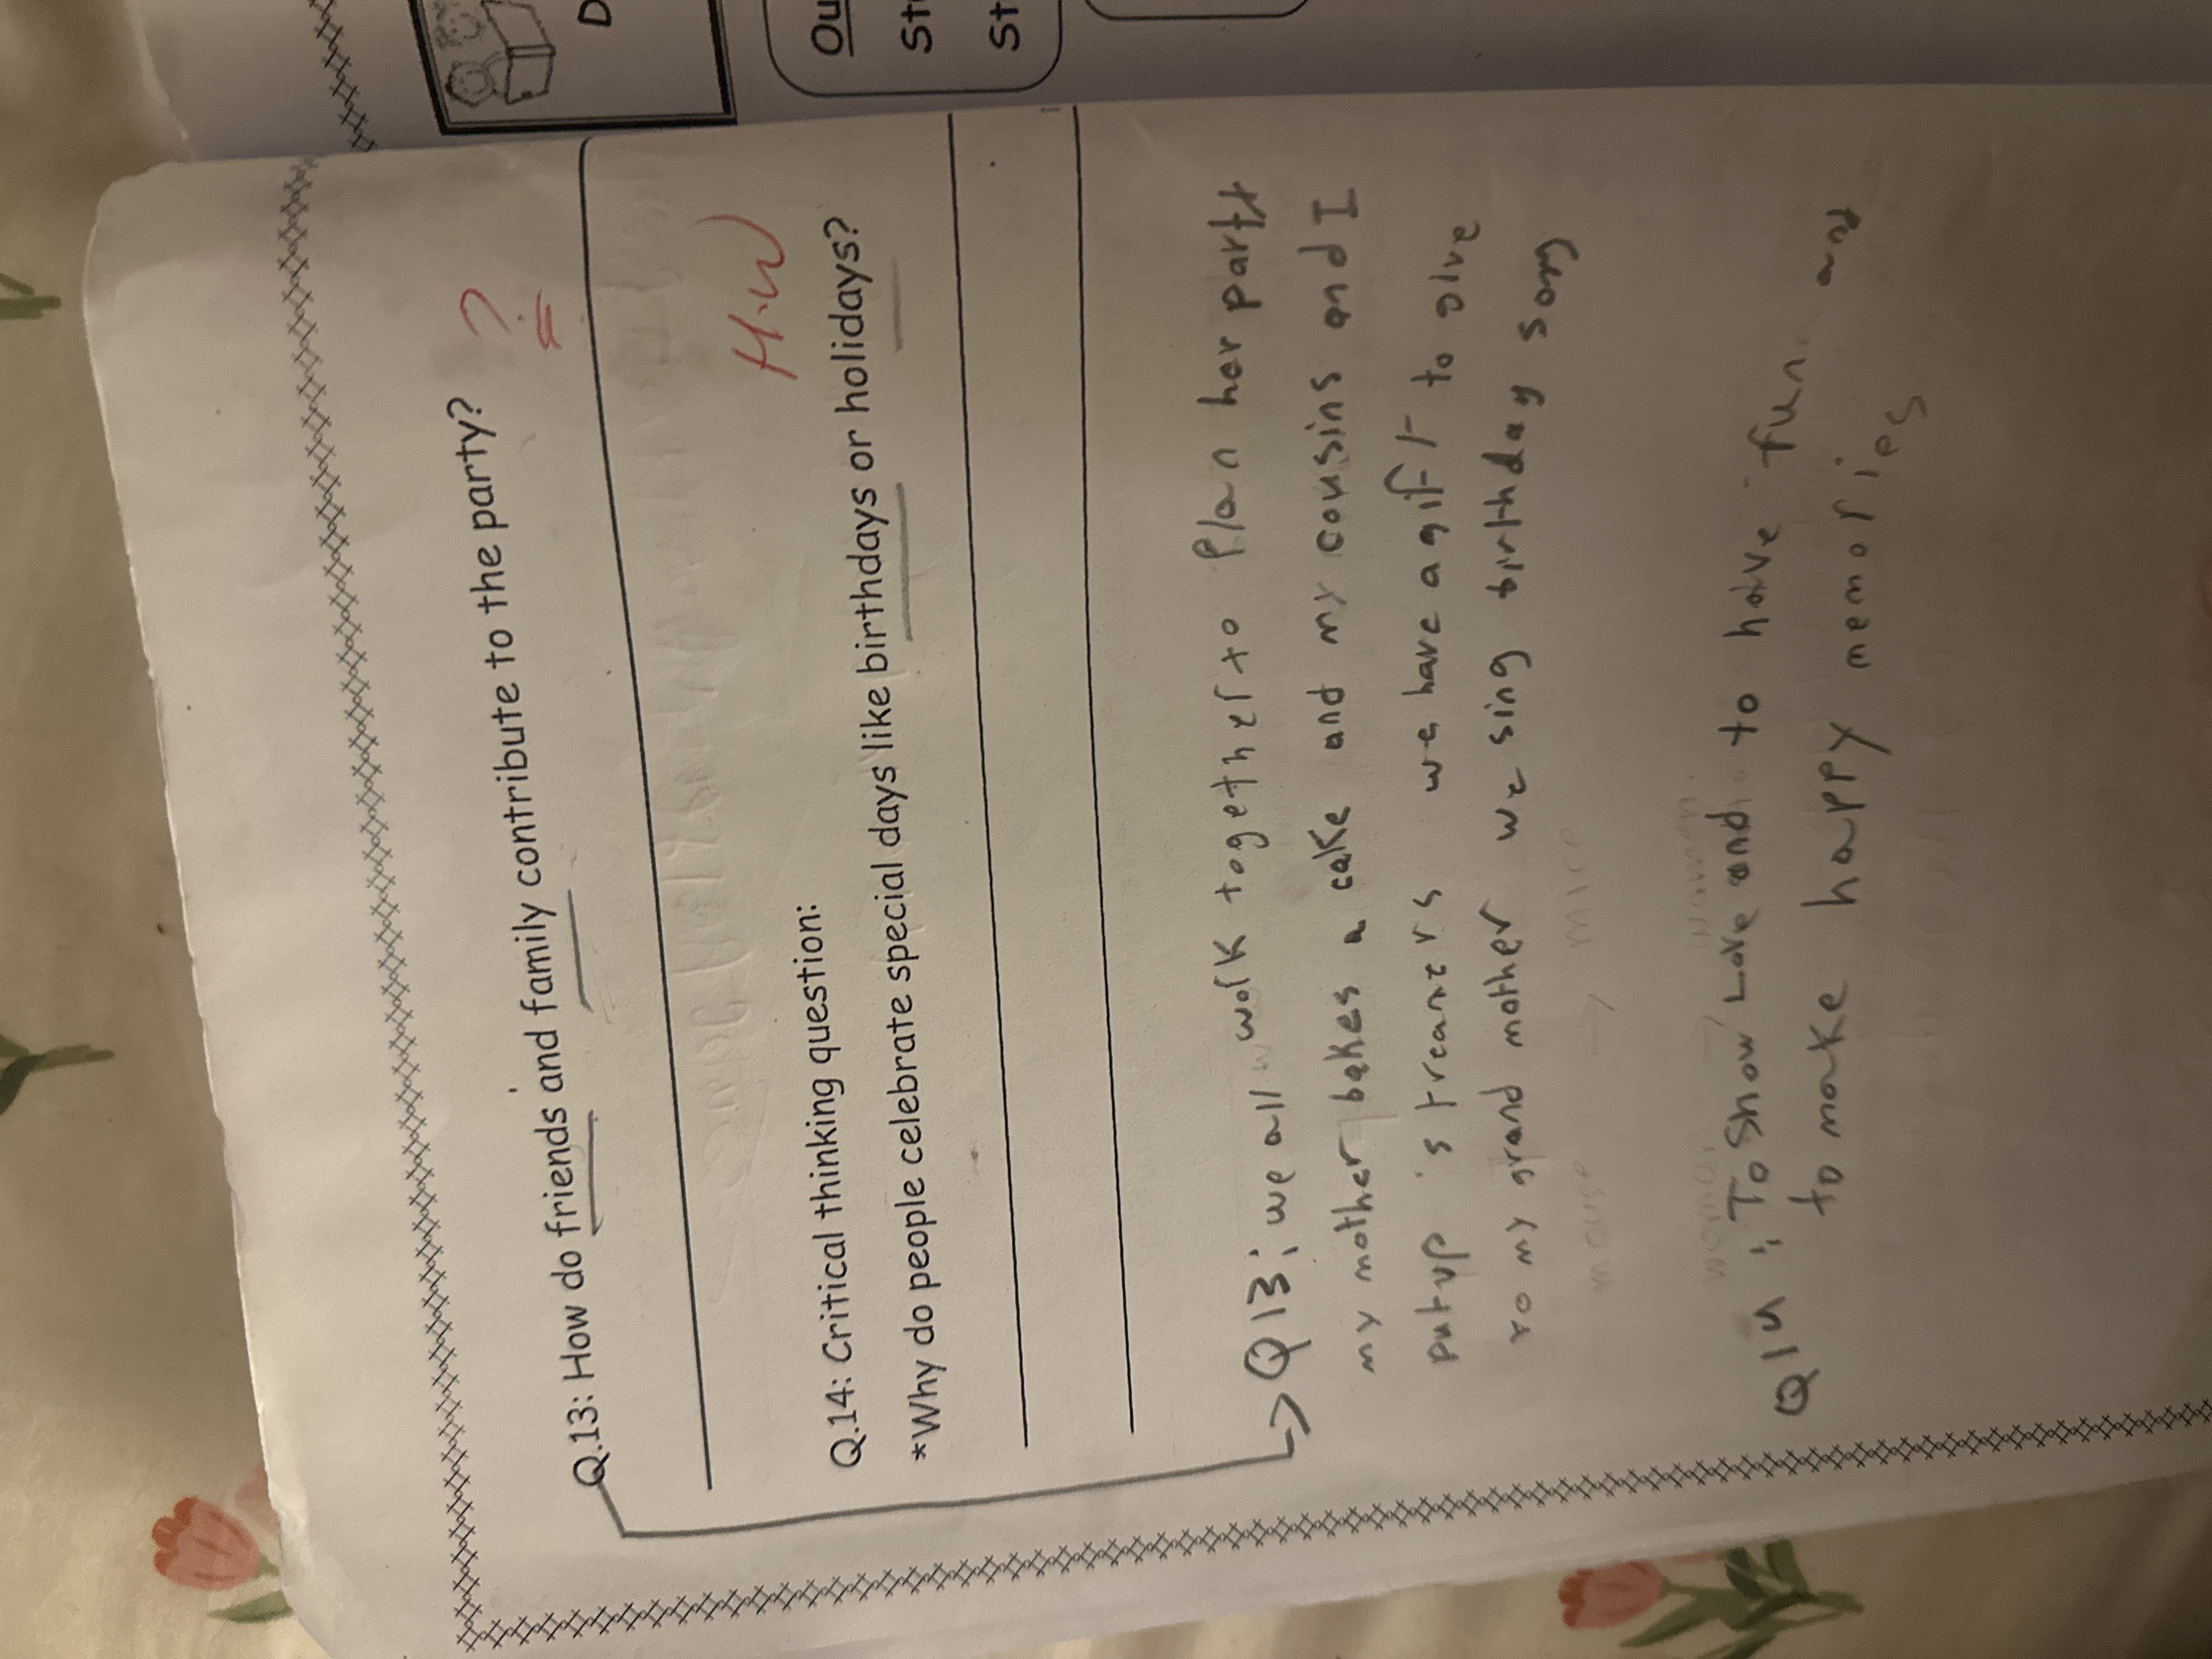 Q.13: How do friends and family contribute to the party?
?
H.W
Q.14: Critical thinking question:
*Why do people celebrate special days like birthdays or holidays?
Q13: we all work together to plan her party
my mother bakes a cake and my cousins and I
put up streamers we have a gift to give
to my grand mother we sing birthday song
mouse → mice
Q14: To show Love and to have fun and
to make happy memories
D
Ou
St
St